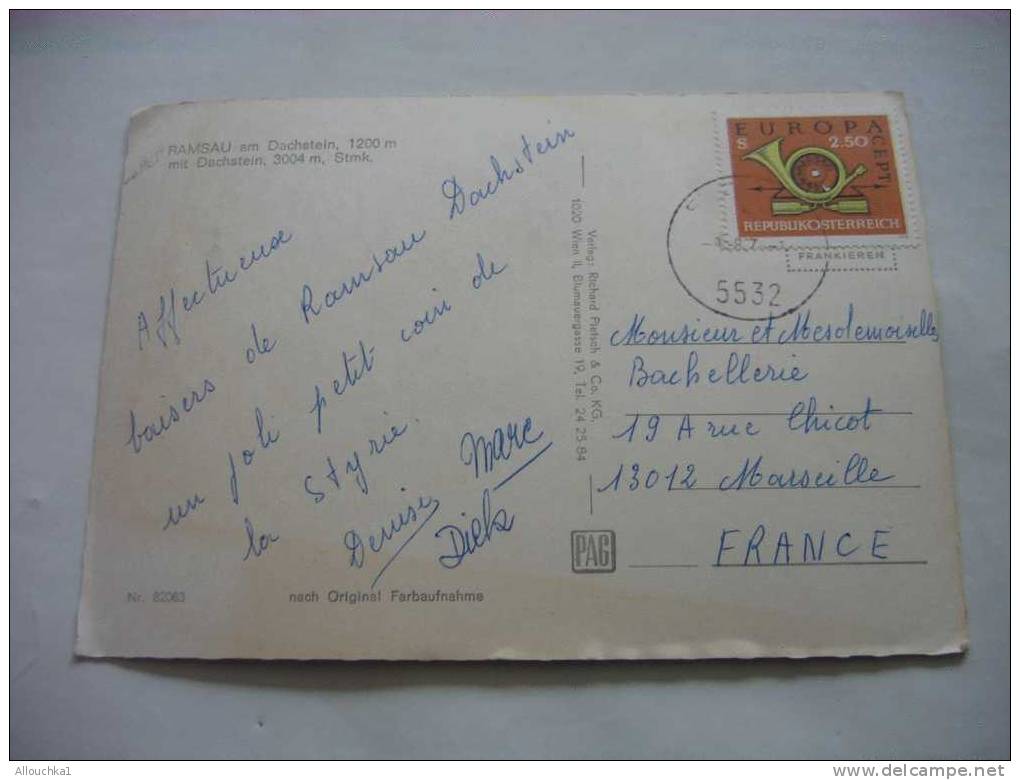 RAMSAU am Dachstein, 1200 m
mit Dachstein, 3004 m, Stmk.
Affectueux
baisers de Ramsau Dachstein
un joli petit coin de
la Styrie.
Denise Marc
Dick
Nr. 82063
nach Original Farbaufnahme
Verlag: Richard Pietsch & Co. KG,
1020 Wien II, Blumauergasse 19, Tel. 24 25 84
PAG
EUROPA
CEPT
S 2.50
REPUBLIK ÖSTERREICH
FRANKIEREN
5532
Monsieur et Mesdemoiselles
Bachellerie
19 A rue Chicot
13012 Marseille
FRANCE
Allouchka1